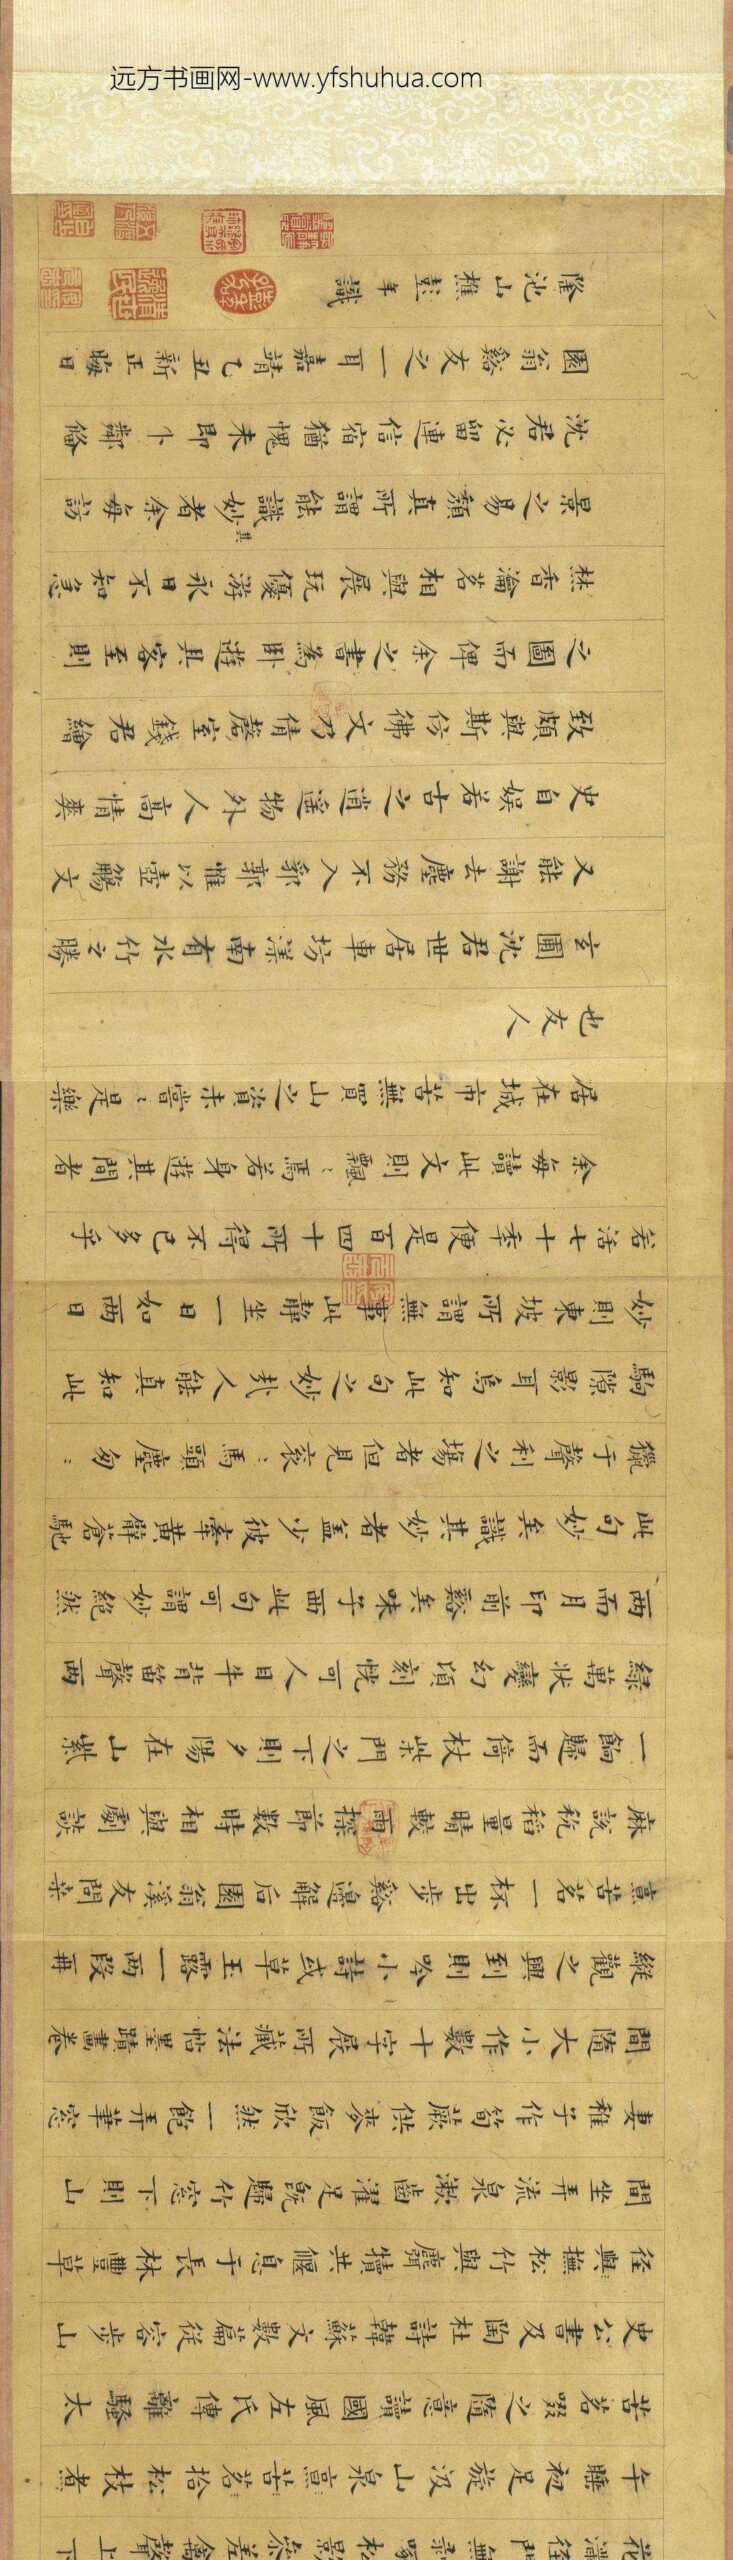 远方书画网-www.yfshuhua.com
花滿徑門無剝啄松影參差禽聲上下
午睡初足旋汲山泉煮苦茗拾松枝煮
苦茗啜之隨意讀國風左氏傳離騷太
史公書及陶杜詩韓蘇文數篇從容步山
徑與撫松竹與麛犢共偃息于長林豐草
間坐弄流泉漱齒濯足既歸竹窓下則山
妻稚子作筍蕨供麥飯欣然一飽弄筆窓
間隨大小作數十字展所藏法帖墨蹟畫卷
縱觀之興到則吟小詩或草玉露一兩段再
烹苦茗一杯出步谿邊解后園翁溪友問桑
麻說秔稻量晴較雨探節數時相與劇談
一餉歸而倚杖柴門之下則夕陽在山紫
綠萬狀變幻頃刻恍可人目牛背笛聲兩
兩而月印前谿矣味子西此句可謂妙絕然
此句妙矣識其妙者蓋少彼牽黃臂蒼馳
獵于聲利之場者但見袞:馬頭塵匆:
駒隙影耳烏知此句之妙哉人能真知此
妙則東坡所謂無事此靜坐一日如兩日
若活七十季便是百四十所得不已多乎
余每讀此文則飄:焉若身遊其間者
居在城市苦無買山之資未嘗:是樂
也友人
玄圃沈君世居車坊漾南有水竹之勝
又能謝去塵務不入郛郭惟以壺觴文
史自娛若古之逍遙物外人高情爽
致頗與斯彷彿文乃倩罄室錢君繪
之圖而俾余之書為臥遊具客至則
焚香瀹茗相與展玩優游永日不知急
景之易頹真所謂能識其妙者余每訪
沈君必留連信宿猶愧未即卜鄰偹
園翁谿友之一耳嘉靖乙丑新正晦日
隆池山樵彭年識